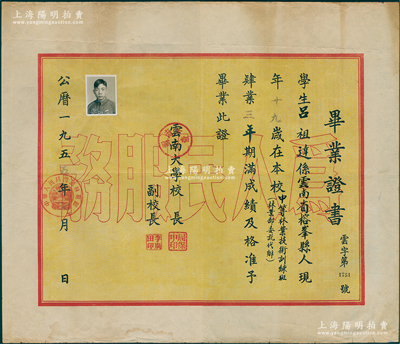 上海陽明拍賣
www.yangmingauction.com
畢業證書
雲字第1731號
學生呂祖達係雲南省峨峯縣人現
年十九歲在本校中等林業技術訓練班
(林業部委託代辦)
肄業三年期滿成績及格准予
畢業此證
雲南大學校長
副校長
公曆一九五 年 月 日
為人民服務
上海陽明拍賣
www.yangmingauction.com